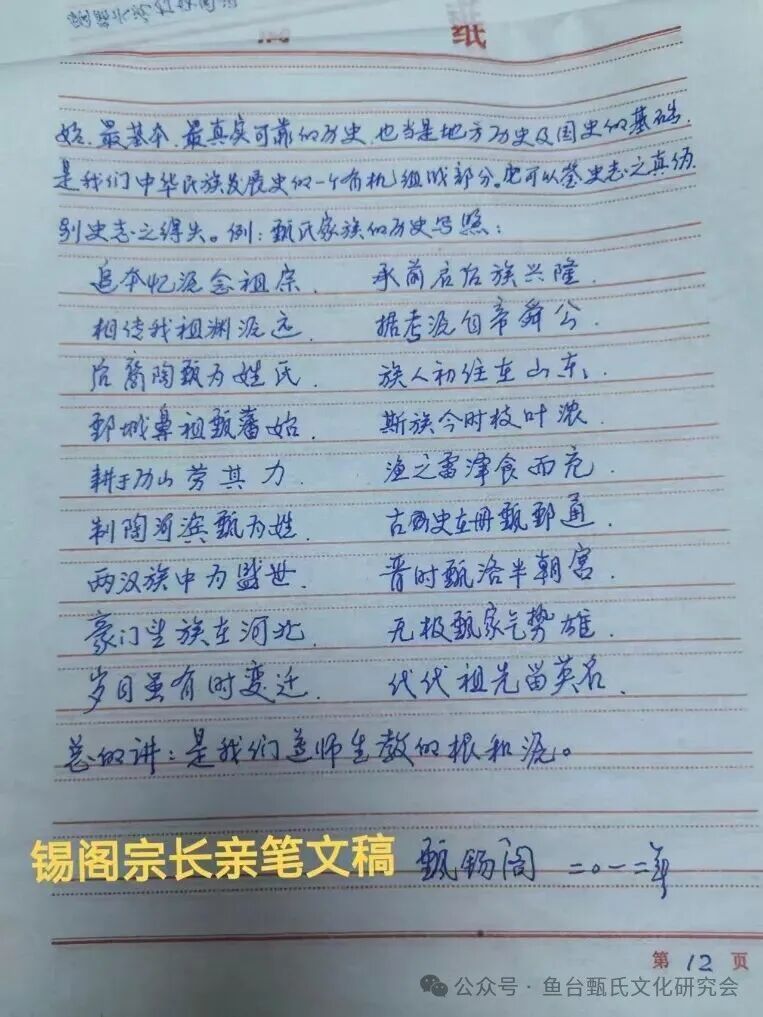 纸
始、最基本、最真实可靠的历史,也当是地方历史及国史的基础,
是我们中华民族发展史的一个有机组成部分。也可以鉴史志之真伪
别史志之得失。例:甄氏家族的历史写照:
追本忆源念祖宗、 承前启后族兴隆、
相传我祖渊源远、 据考源自帝舜公、
后裔陶甄为姓氏、 族人初住在山东、
鄄城鼻祖甄藩始、 斯族今时枝叶浓、
耕于历山劳其力、 渔之雷泽食而充、
制陶河滨甄为姓、 古国史在册甄鄄通、
两汉族中为盛世、 晋时甄洛半朝宫、
豪门望族在河北、 无极甄家气势雄、
岁月虽有时变迁、 代代祖先留英名、
总的讲:是我们尊师生教的根和源。
锡阁宗长亲笔文稿 甄锡阁 二〇一二年
第 12 页
公众号·鱼台甄氏文化研究会